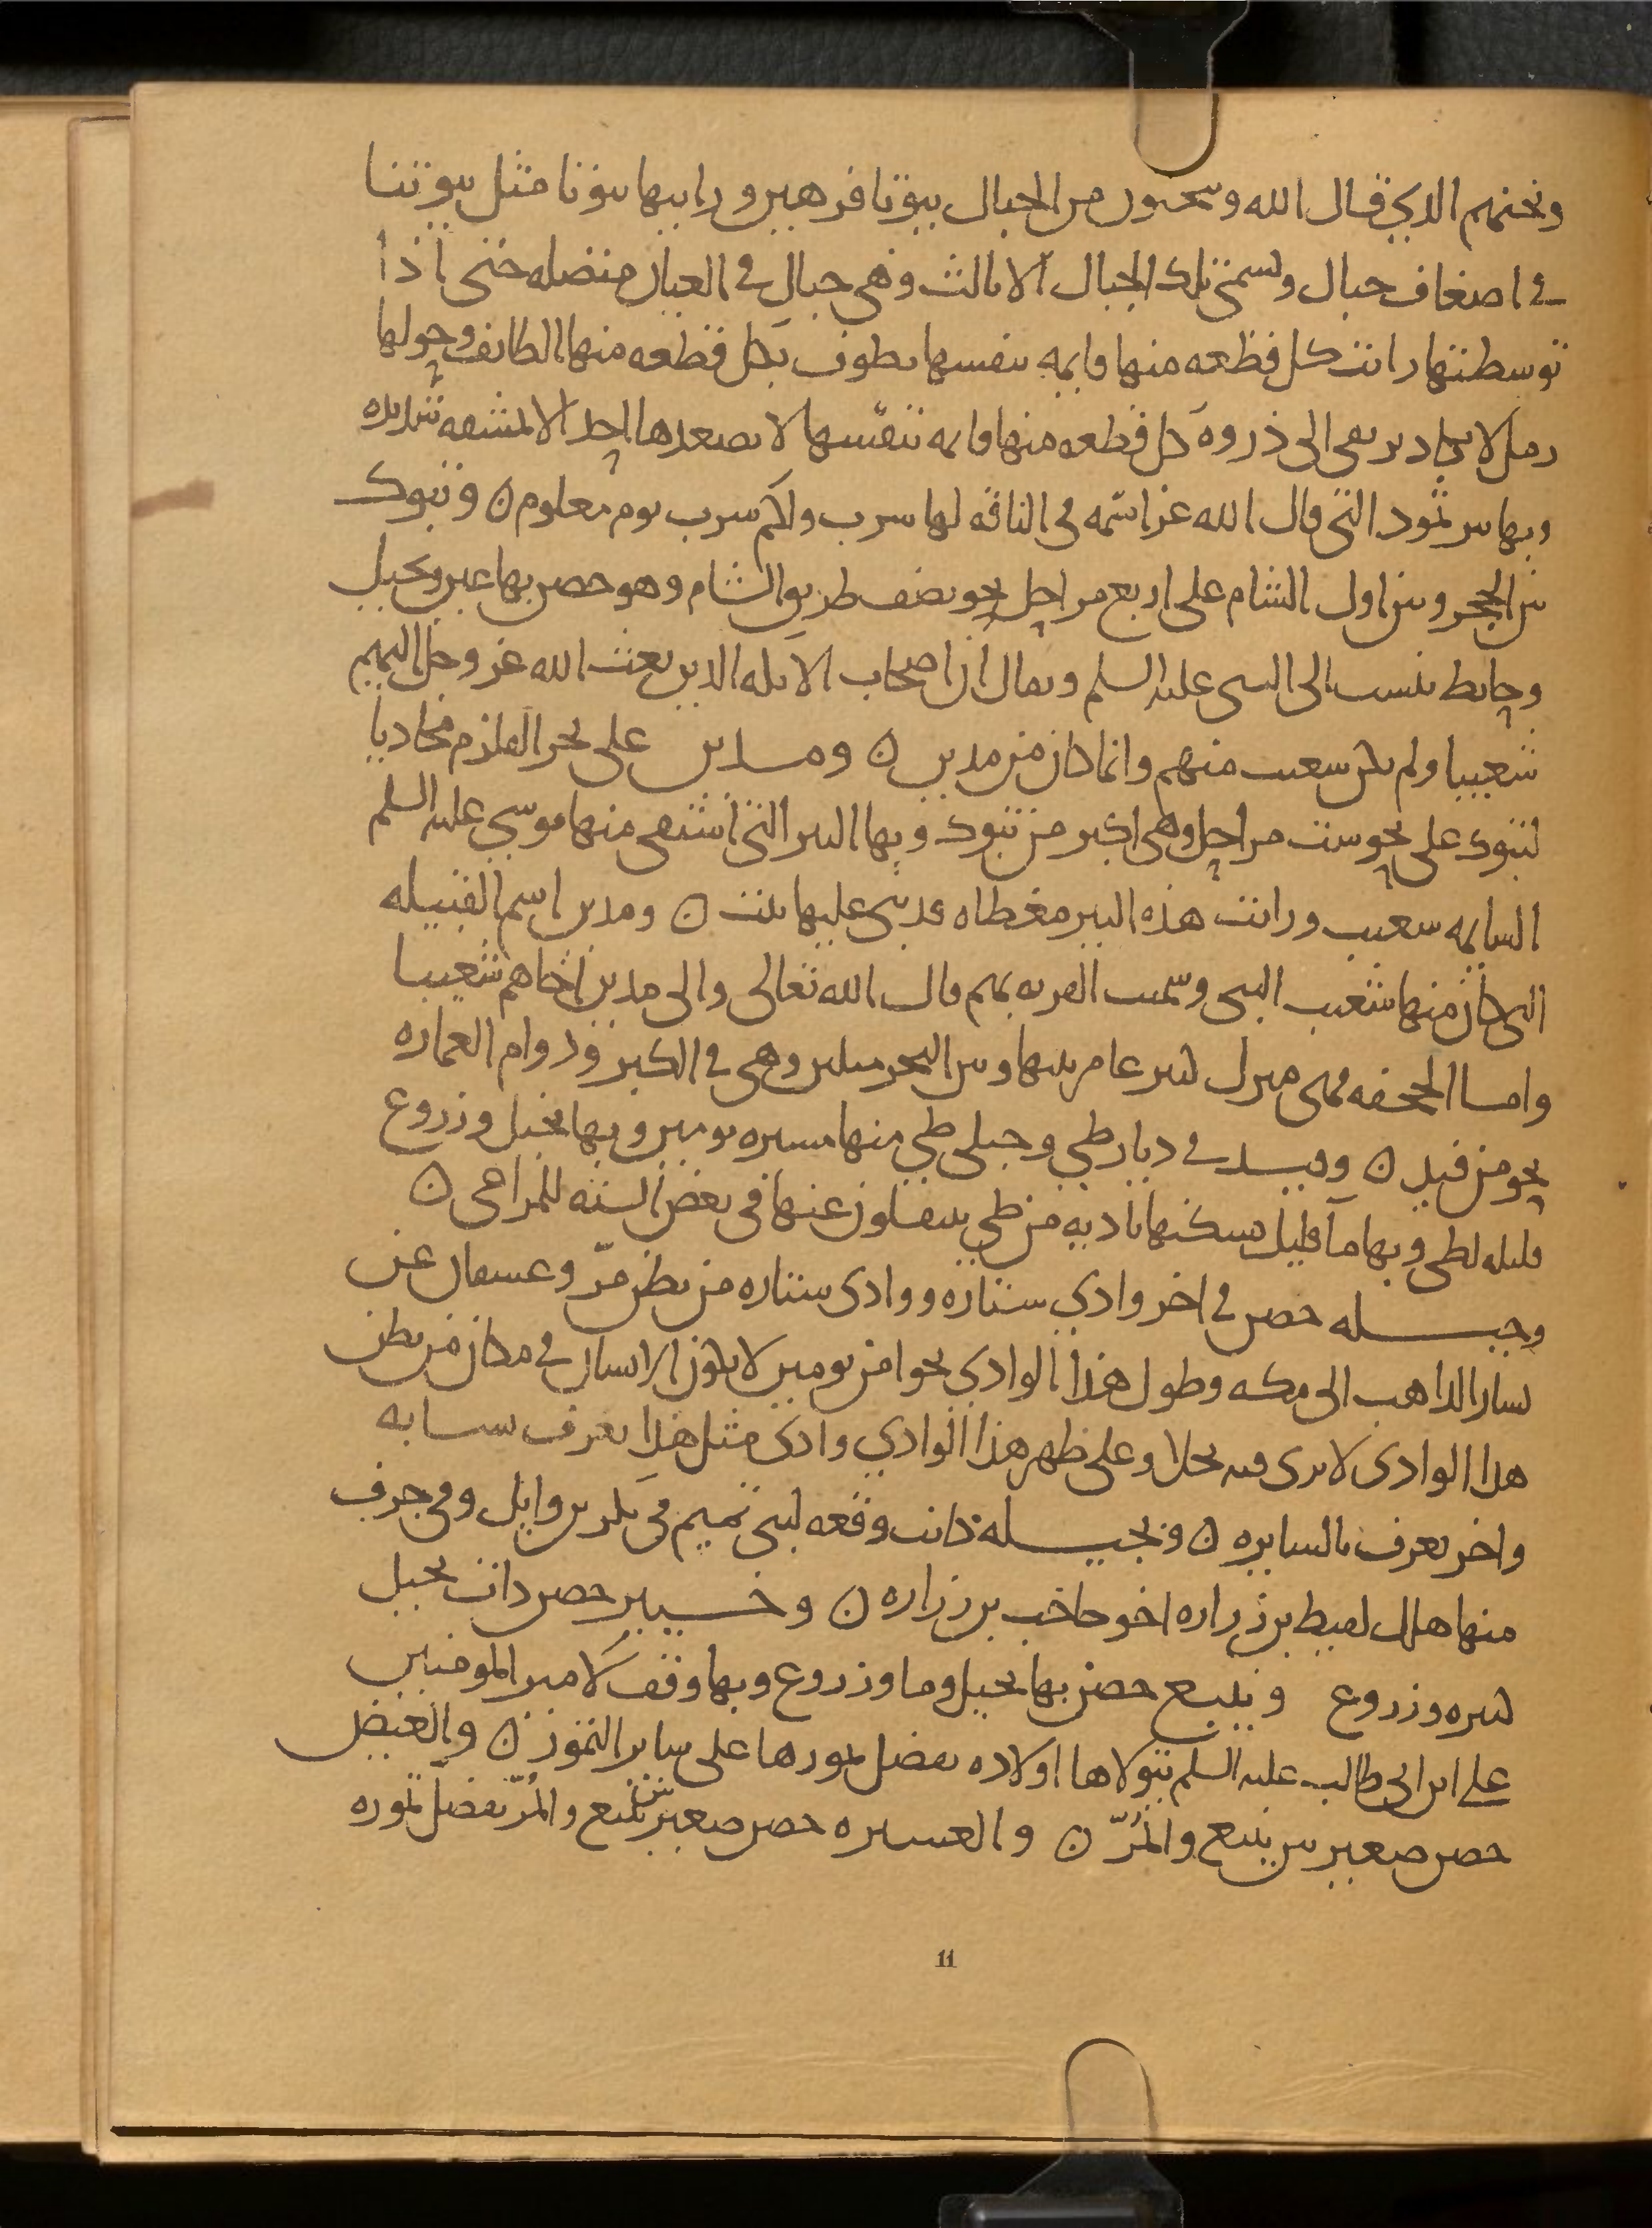 ونحتهم الذي قال الله وتنحتون من الجبال بيوتا فرهين ورايتها بيوتا مثل بيوتنا
في اصعاف جبال وتسمى تلك الجبال الاثالث وهي جبال في العيان متصله حتى اذا
توسطتها رايت كل قطعه منها قايمه بنفسها يطوف بكل قطعه منها الطايف وحولها
رمل لا يكاد يرتقى الى ذروة كل قطعه منها قايمه بنفسها لا يصعدها احد الا بمشقه شديده
وبها بير ثمود التي قال الله عز اسمه في الناقه لها شرب ولكم شرب يوم معلوم ن وتبوك
بين الحجر وبين اول الشام على اربع مراحل نحو نصف طريق الشام وهو حصن بها عين ونخيل
وحايط ينسب الى النبي عليه السلم ويقال ان اصحاب الايكه الذين بعث الله عز وجل اليهم
شعيبا ولم يكن شعيب منهم وانما كان من مدين ن ومدين على بحر القلزم محاذيا
لتبوك على نحو ست مراحل وهي اكبر من تبوك وبها البير التي استقى منها موسى عليه السلم
لسايمه شعيب ورايت هذه البير مغطاه قد بني عليها بيت ن ومدين اسم القبيله
التي كان منها شعيب النبي وسميت القريه بهم قال الله تعالى والى مدين اخاهم شعيبا
واما الجحفه فهي منزل كثير عامر بينها وبين البحر ميلين وهي في الكبر ودوام العماره
نحو من فيد ن وفيد في ديار طي وجبلي طي منها مسيره يومين وبها نخيل وزروع
قليله لطي وبها ما قليل يسكنها باديه من طي ينتقلون عنها في بعض السنه للمراعي ن
وجبله حصن في اخر وادي ستاره ووادي ستاره من بطن مر وعسفان عن
يسار الذاهب الى مكه وطول هذا الوادي نحوا من يومين لا يكون الانسان في مكان من بطن
هذا الوادي لا يرى فيه نخلا وعلى ظهر هذا الوادي وادي مثل هذا يعرف بسايه
واخر يعرف بالسايره ن وبجبله كانت وقعه لبني تميم في بكر بن وايل وفي جرف
منها هلك لقيط بن زراره اخو حاجب بن زراره ن وخيبر حصن ذات نخيل
كثيره وزروع وينبع حصن بها نخيل وما وزروع وبها وقف لامير المومنين
علي ابن ابي طالب عليه السلم يتولاها اولاده يفضل تمورها على ساير التمور ن والعيص
حصن صغير بين ينبع والمر ن والعشيره حصن صغير بين ينبع والمر يفضل تموره
11